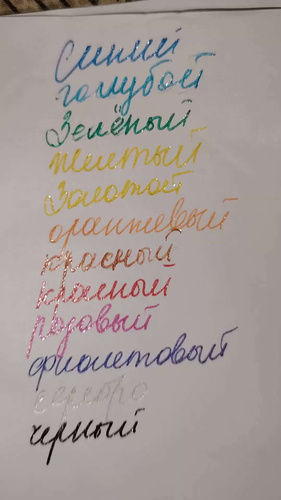 Синий
голубой
Зелёный
жёлтый
Золотой
оранжевый
красный
красный
розовый
фиолетовый
серебро
черный